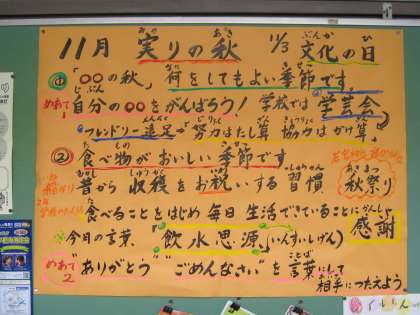 11月 実りの秋 11/3 文化の日
① 「○○の秋」 何をしてもよい季節です。
めあて1 自分の○○をがんばろう! 学校では 学芸会
フレンドリー遠足が 努力はたし算 協力はかけ算
② 食べ物がおいしい季節です。
昔から 収穫をお祝いする 習慣 秋祭り
食べることをはじめ 毎日 生活できていることに 感謝
※今月の言葉 「飲水思源」(いんすいしげん)
めあて2 "ありがとう" "ごめんなさい" を言葉にして
相手につたえよう。